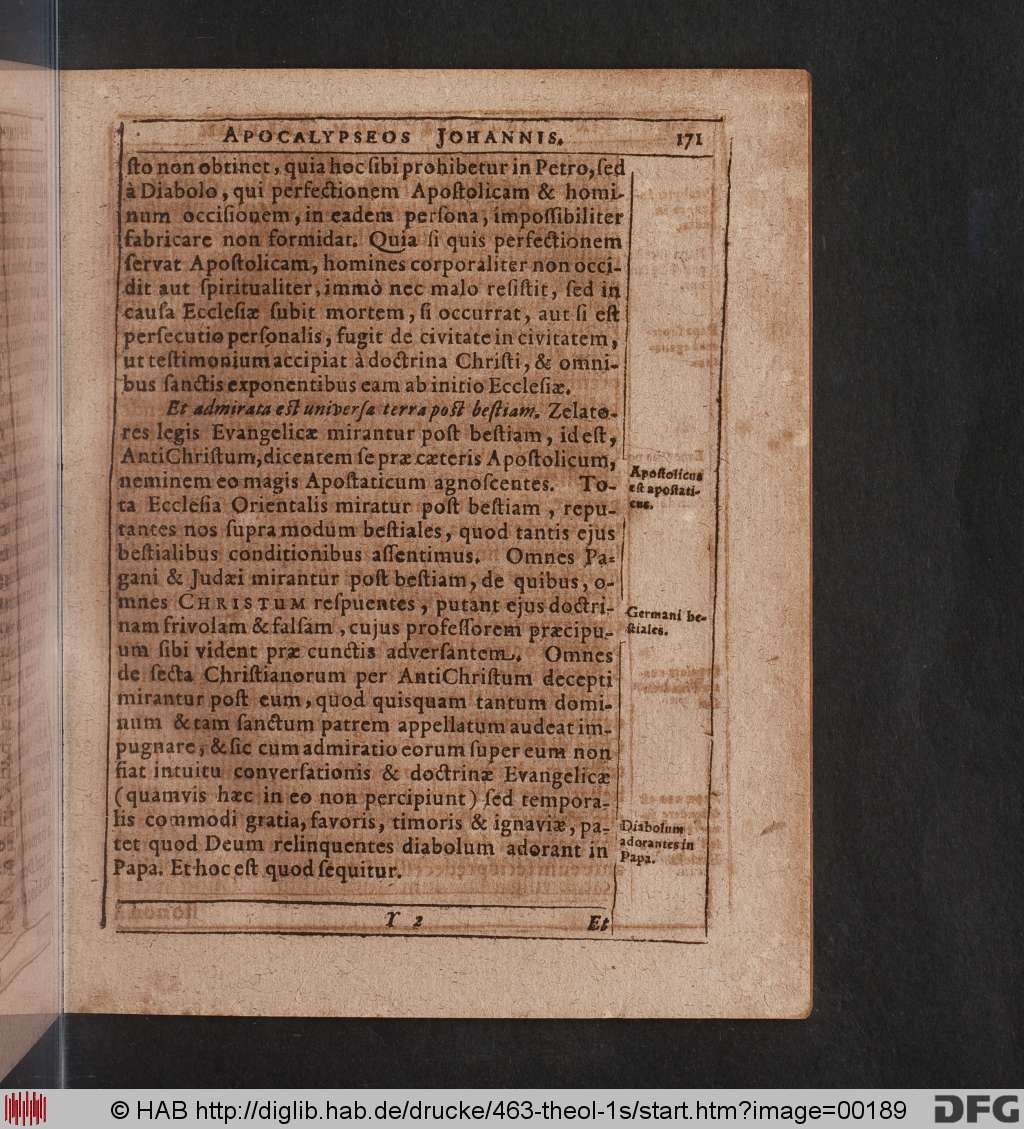 APOCALYPSEOS JOHANNIS. 171
ſto non obtinet, quia hoc ſibi prohibetur in Petro, ſed
à Diabolo, qui perfectionem Apoſtolicam & homi-
num occiſionem, in eadem perſona, impoſſibiliter
fabricare non formidat. Quia ſi quis perfectionem
ſervat Apoſtolicam, homines corporaliter non occi-
dit aut ſpiritualiter, immò nec malo reſiſtit, ſed in
cauſa Eccleſiæ ſubit mortem, ſi occurrat, aut ſi eſt
perſecutio perſonalis, fugit de civitate in civitatem,
ut teſtimonium accipiat à doctrina Chriſti, & omni-
bus ſanctis exponentibus eam ab initio Eccleſiæ.
Et admirata eſt univerſa terra poſt beſtiam. Zelato-
res legis Evangelicæ mirantur poſt beſtiam, id eſt,
AntiChriſtum, dicentem ſe præ cæteris Apoſtolicum,
neminem eo magis Apoſtaticum agnoſcentes. To-
Apoſtolicus
eſt apoſtati-
cus.
ta Eccleſia Orientalis miratur poſt beſtiam, repu-
tantes nos ſupra modum beſtiales, quod tantis ejus
beſtialibus conditionibus aſſentimus. Omnes Pa-
gani & Judæi mirantur poſt beſtiam, de quibus, o-
mnes CHRISTUM reſpuentes, putant ejus doctri-
nam frivolam & falſam, cujus profeſſorem præcipu-
Germani be-
ſtiales.
um ſibi vident præ cunctis adverſantem. Omnes
de ſecta Chriſtianorum per AntiChriſtum decepti
mirantur poſt eum, quod quisquam tantum domi-
num & tam ſanctum patrem appellatum audeat im-
pugnare, & ſic cum admiratio eorum ſuper eum non
fiat intuitu converſationis & doctrinæ Evangelicæ
(quamvis hæc in eo non percipiunt) ſed tempora-
lis commodi gratia, favoris, timoris & ignaviæ, pa-
tet quod Deum relinquentes diabolum adorant in
Papa. Et hoc eſt quod ſequitur.
Diabolum
adorantes in
Papa.
Y 2 Et
© HAB http://diglib.hab.de/drucke/463-theol-1s/start.htm?image=00189 DFG